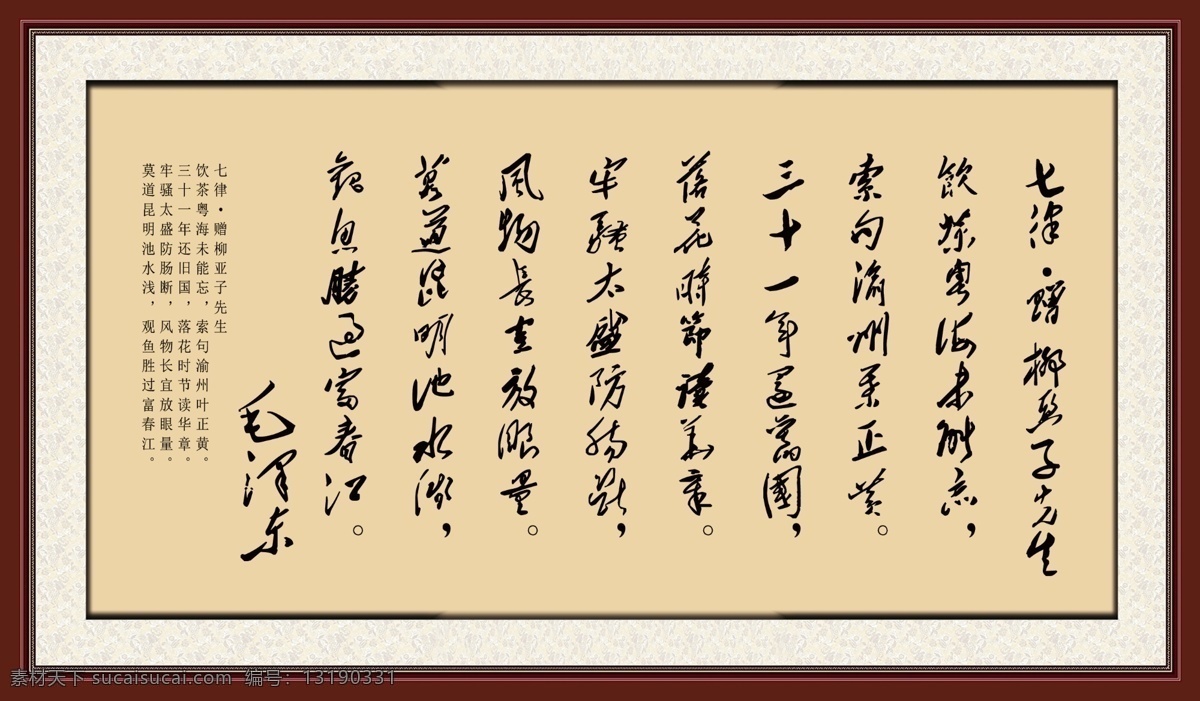 七律·赠柳亚子先生
飲茶粤海未能忘，
索句渝州葉正黄。
三十一年還舊國，
落花時節讀華章。
牢騷太盛防腸斷，
風物長宜放眼量。
莫道昆明池水淺，
觀魚勝過富春江。
毛泽东
七律·赠柳亚子先生
饮茶粤海未能忘，索句渝州叶正黄。
三十一年还旧国，落花时节读华章。
牢骚太盛防肠断，风物长宜放眼量。
莫道昆明池水浅，观鱼胜过富春江。
素材天下 sucaisucai.com 编号：13190331